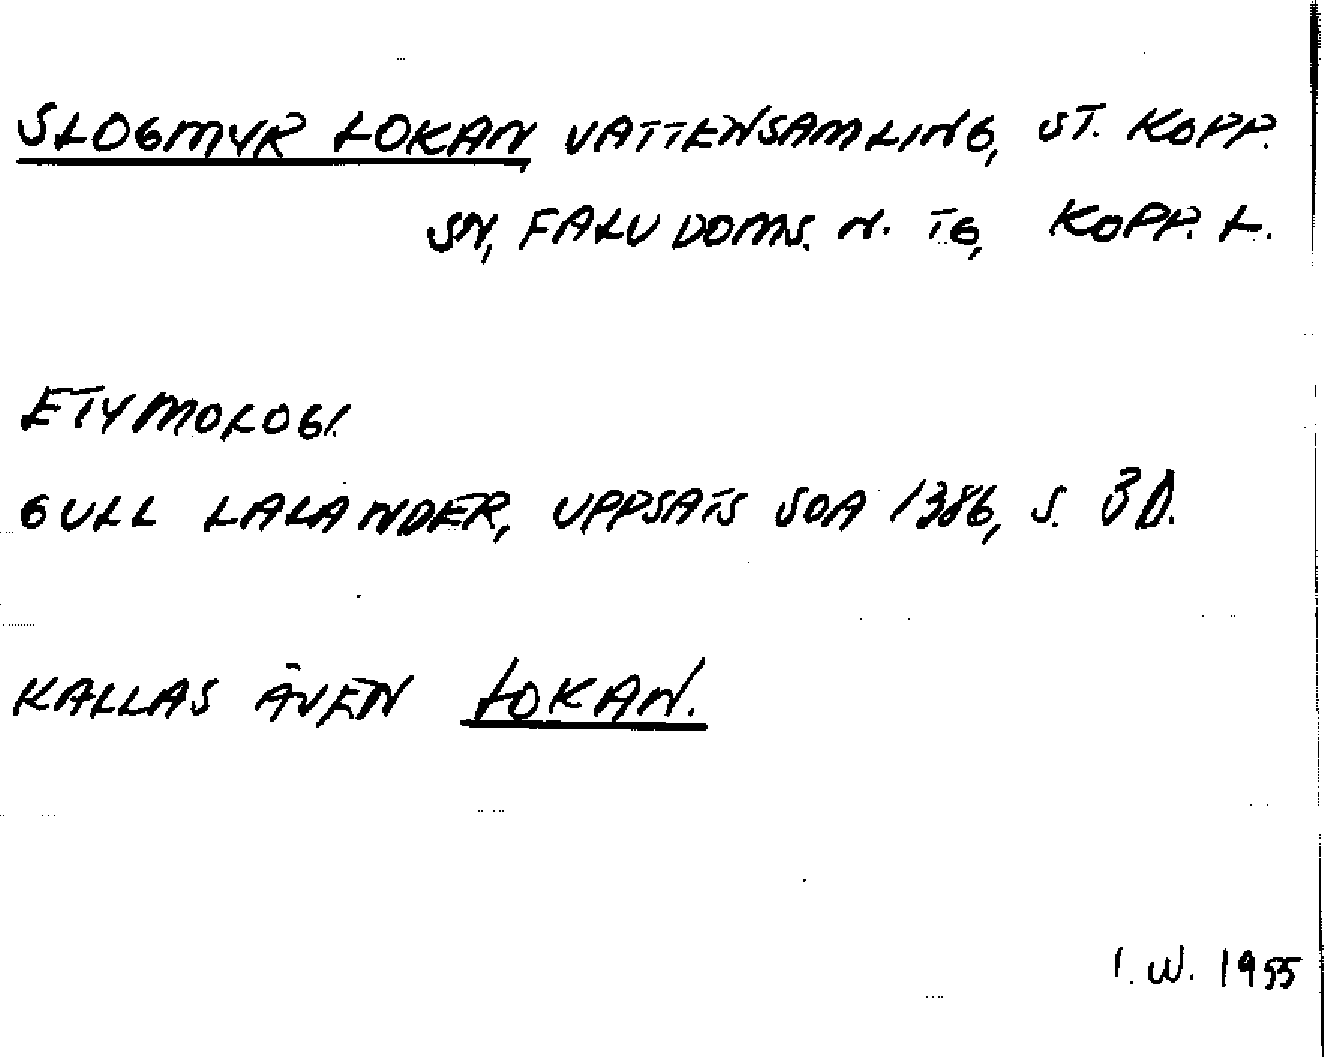 SLOGMYR LOKAN VATTENSAMLING, ST. KOPP.
SN, FALU DOMS. N. TG, KOPP. L.
ETYMOLOGI.
GULL LALANDER, UPPSATS SOA 1386, S.
KALLAS ÄVEN LOKAN.
I. W. 1955